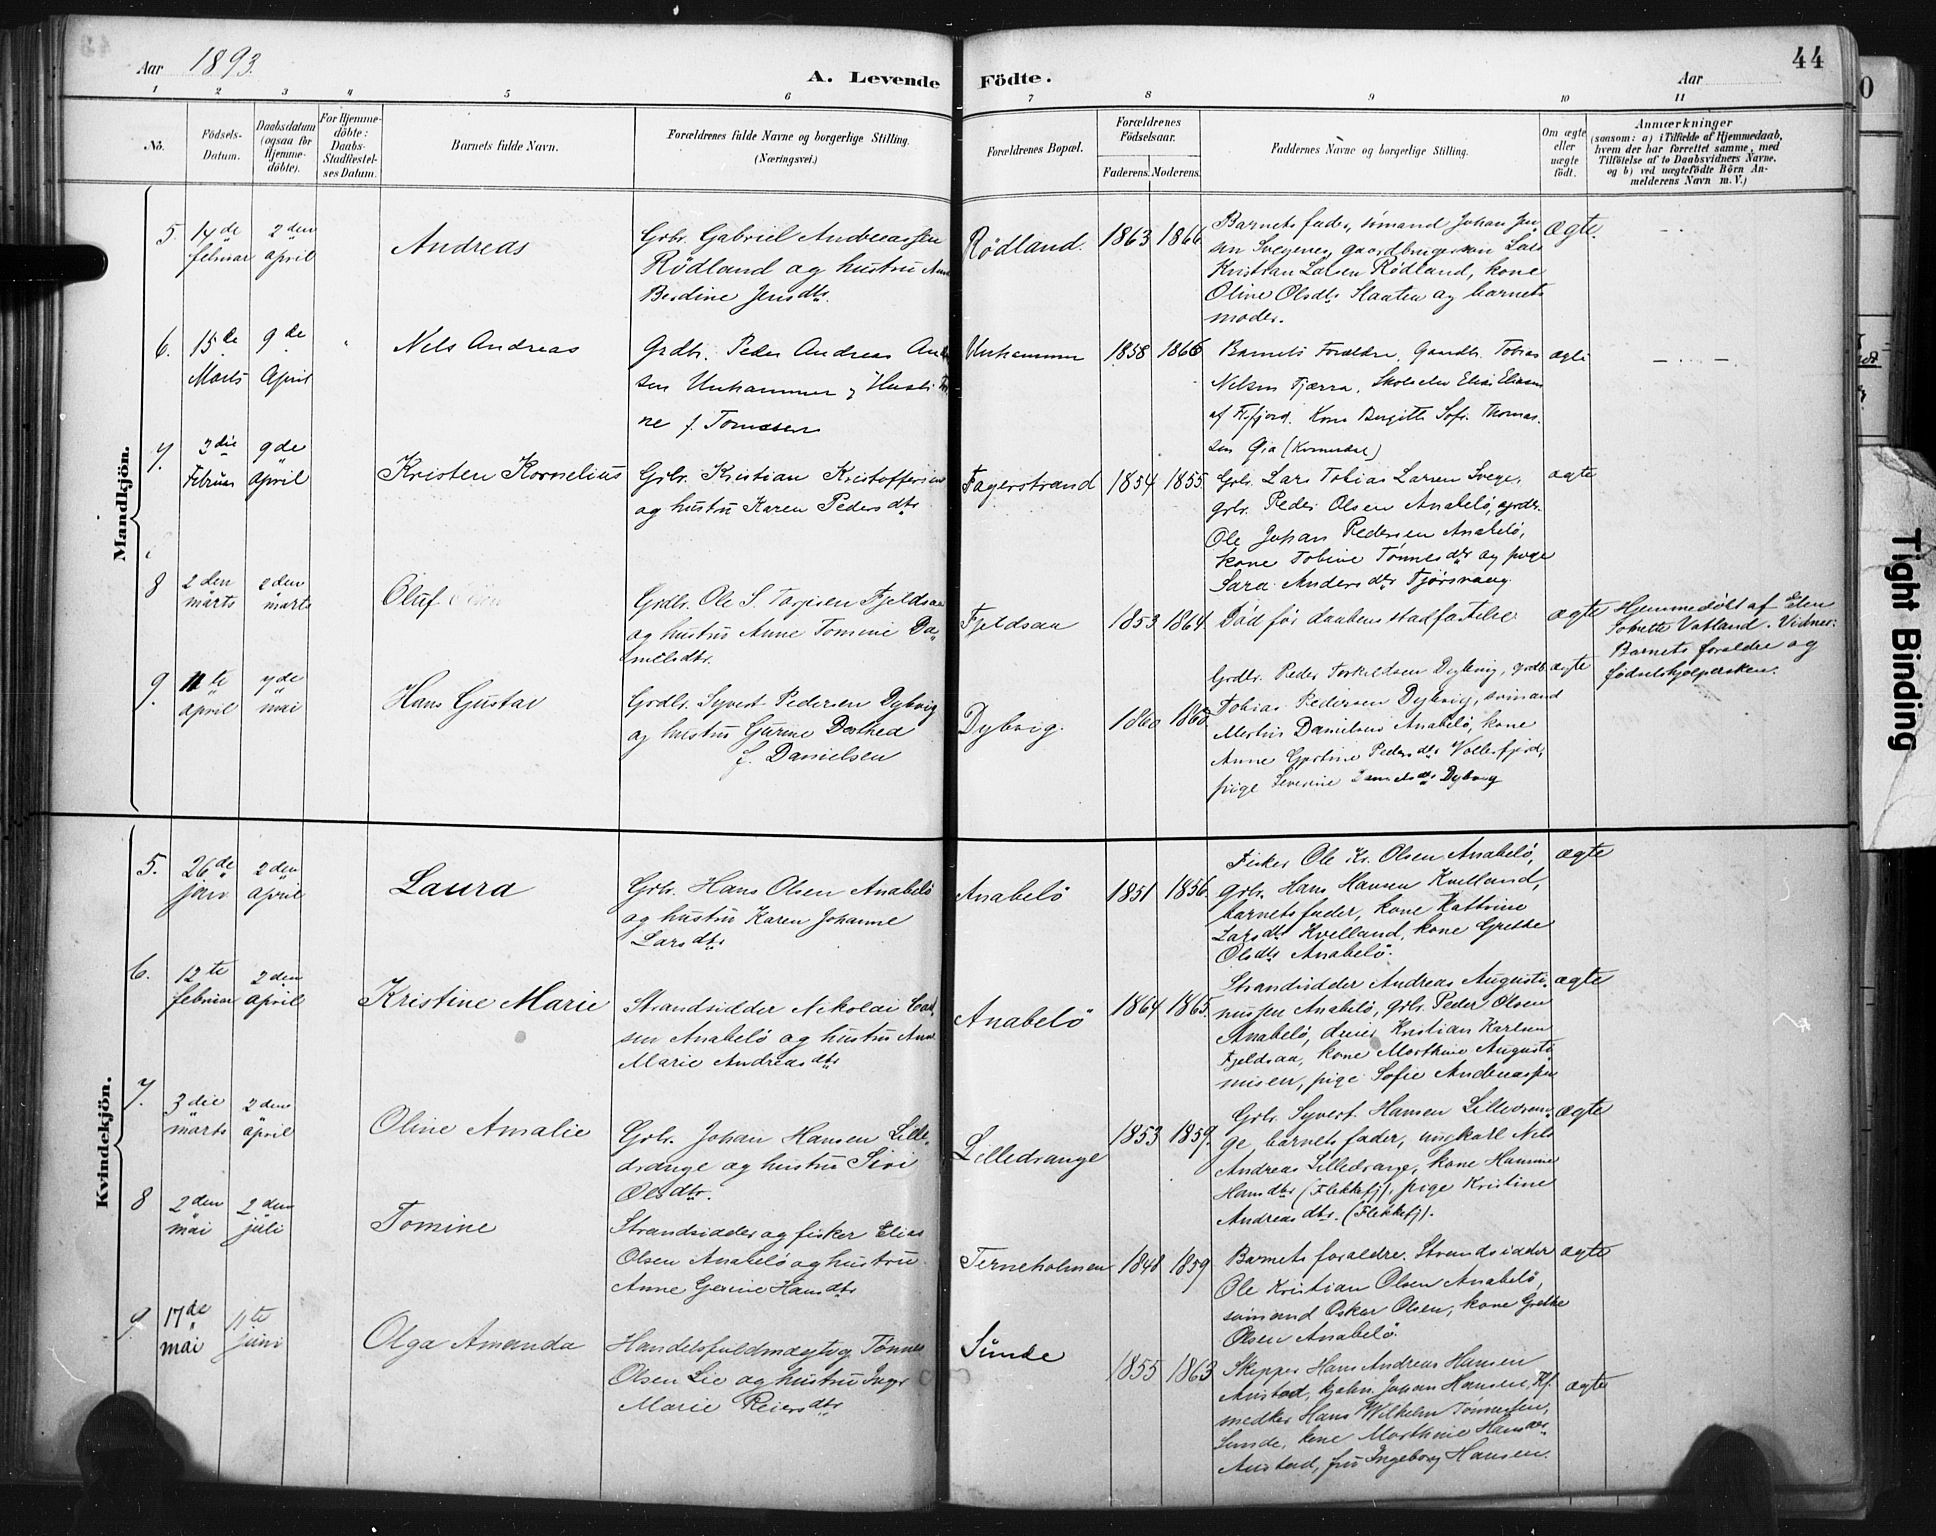 Aar 1893.
A. Levende Födte.
Aar
44
1 2 3 4 5 6 7 8 9 10 11
No.
Födsels-Datum.
Daabsdatum (ogsaa for Hjemme-döbte).
For Hjemme-döbte: Daabs-Stadfæstel-ses Datum.
Barnets fulde Navn.
Forældrenes fulde Navne og borgerlige Stilling. (Næringsvei.)
Forældrenes Bopæl.
Forældrenes Födselsaar.
Faderens. Moderens.
Faddernes Navne og borgerlige Stilling.
Om ægte eller uægte födt.
Anmærkninger
(saasom: a) i Tilfælde af Hjemmedaab,
hvem der har forrettet samme, med
Tilföielse af to Daabsvidners Navne,
og b) ved uægtefödte Börn An-
melderens Navn m. V.)
Mandkjön.
5. 14de februar 2den april
Andreas
Grbr. Gabriel Andreassen
Rödland og hustru
Berdine Jensdtr.
Rödland.
1863 1866
Barnets fader, sömand Johan Jen
sen Svegene, gaardbruger Lars
Kristian Larsen Rødland, kone
Oline Olsdtr Slaaten og barnets
moder.
ægte.
6. 15de Marts 9de April
Nels Andreas
Grdb. Peder Andreas
sen Unhammer
ne f. Tomasen
Unhammer
1858 1866
Barnets Forældre, Tobias
Nelsen Fjærra, Elias Eliasen
af Kone Birgitte Sof. Thomas
sen
ægte
7. 3die Februar 9de april
Kristen Kornelius
Grbr. Kristian Kristoffersen
og hustru Karen Pedersdtr
Fagerstrand
1854 1855.
Grbr. Lars Tobias Larsen Svege,
grbr. Peder Olsen Anabelö,
Ole Johan Pedersen Anabelö,
kone Tobine Tønnesdtr og pige
Sara Andersdtr Tjørsvaag.
ægte
8 2den marts 2den marts
Oluf
Grdbr. Ole S. Tarjesen Fjeldsaa
og hustru Anne Tomine Da
nielsdtr.
Fjeldsaa
1853 1864
Död før daabens stadfæstelse
ægte
Hjemmedøbt af Elen
Tobrette Vatland. Vidner:
Barnets forældre og
fødselshjælpersken.
9. 11te april 7de mai
Hans Gustav
Grdbr. Syvert Pedersen Dybvig
og hustru Gurine Dorthed
f. Danielsen
Dybvig.
1860 1860
Grdbr. Peder Torkildsen Dybvig, grdb.
Tobias Pedersen Dybvig, sømand
Martin Danielsen Anabelö, kone
Anne Gurine Pedersdtr Vollesfjord,
pige Severine Danielsdtr Dybvig
ægte
Kvindekjön.
5. 26de jan 2den april
Laura
Grbr. Hans Olsen Anabelö
og hustru Karen Johanne
Larsdtr
Anabelö
1851 1856.
Fisker Ole Kr. Olsen Anabelö,
grbr. Hans Hansen Kvelland,
barnets fader, kone Kathrine
Larsdtr Kvelland, kone Grethe
Olsdtr Anabelö.
ægte
6. 12te februar 2den april
Kristine Marie
Strandsidder Nikolai
sen Anabelö og hustru Ane
Marie Andreasdtr
Anabelö
1864 1865.
Strandsidder Andreas Augusti-
nussen Anabelö, grbr. Peder Olsen
Anabelö, Kristian Karlsen
Fjeldsaa, kone Marthine Augusti
nusen, pige Sofie Andreassen
ægte
7. 3die marts 2den april
Oline Amalie
Grbr. Johan Hansen Lille-
drange og hustru Siri
Olsdtr.
Lilledrange
1853 1859.
Grbr. Syvert Hansen Lilledran-
ge, barnets fader, ungkarl Nils
Andreas Lilledrange, kone Hanne
Hansdtr (Flekkefj), pige Kristine
Andreasdtr. (Flekkefj).
ægte
8 2den mai 2den juli
Tomine
Strandsidder og fisker Elias
Olsen Anabelö og hustru
Anne Gurine Hansdtr
Terneholmen
1848 1859
Barnets forældre. Strandsidder
Ole Kristian Olsen Anabelö,
sömand Oskar Olsen, kone Grethe
Olsen Anabelö.
ægte
9. 17de mai 11te juni
Olga Amanda
Handelsfuldmægtig Tønnes
Olsen Lie og hustru Inger
Marie Reiersdtr
Sunde
1855 1863
Skipper Hans Andreas Hansen
Austad, Johan Hansen, Kf.
Hans Wilhelm Tönnesen,
Sunde, kone Marthine Hansdtr
Austad, fru Ingeborg Hansen.
ægte
Tight Binding